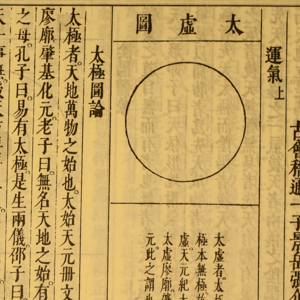 運氣上
太虛圖
太虛者。太
極本無極
虛天元紀大
太虛廖廓
元此之謂
太極圖論
太極者。天地萬物之始也。太始天元冊文
廖廓肇基化元。老子曰。無名天地之始。有
之母。孔子曰。易有太極。是生兩儀。邵子曰